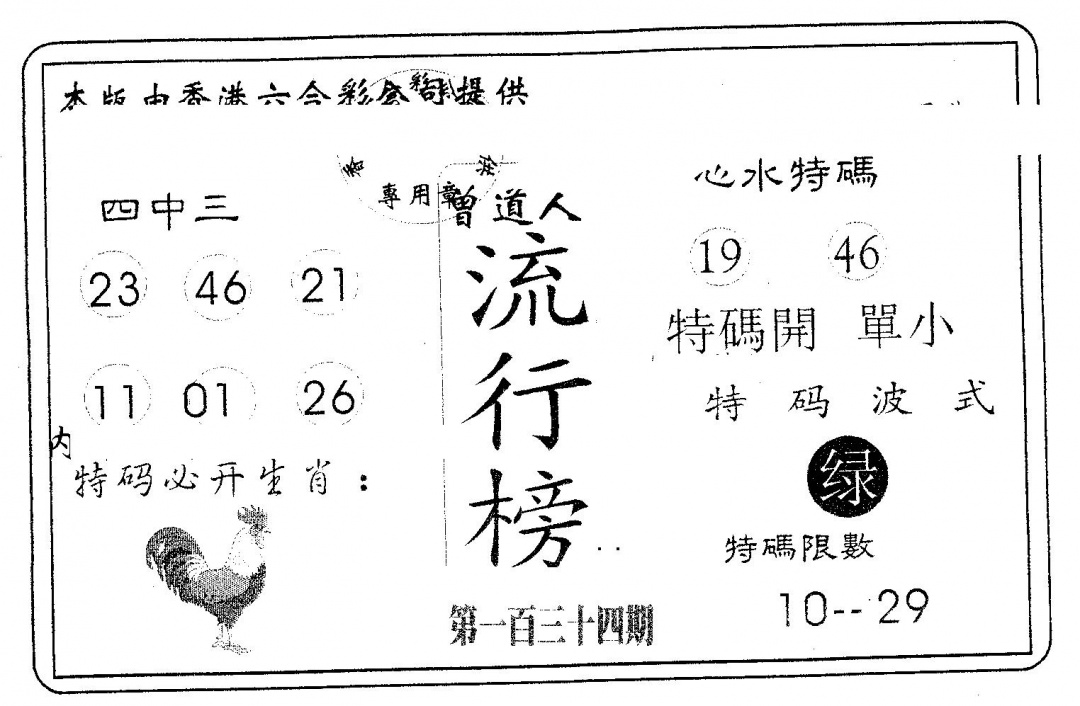 本版由香港六合彩公司提供
專用章
四中三
23 46 21
11 01 26
内
特码必开生肖：
曾道人
流行榜
第一百三十四期
心水特碼
19 46
特碼開 單小
特码波式
绿
特碼限數
10--29